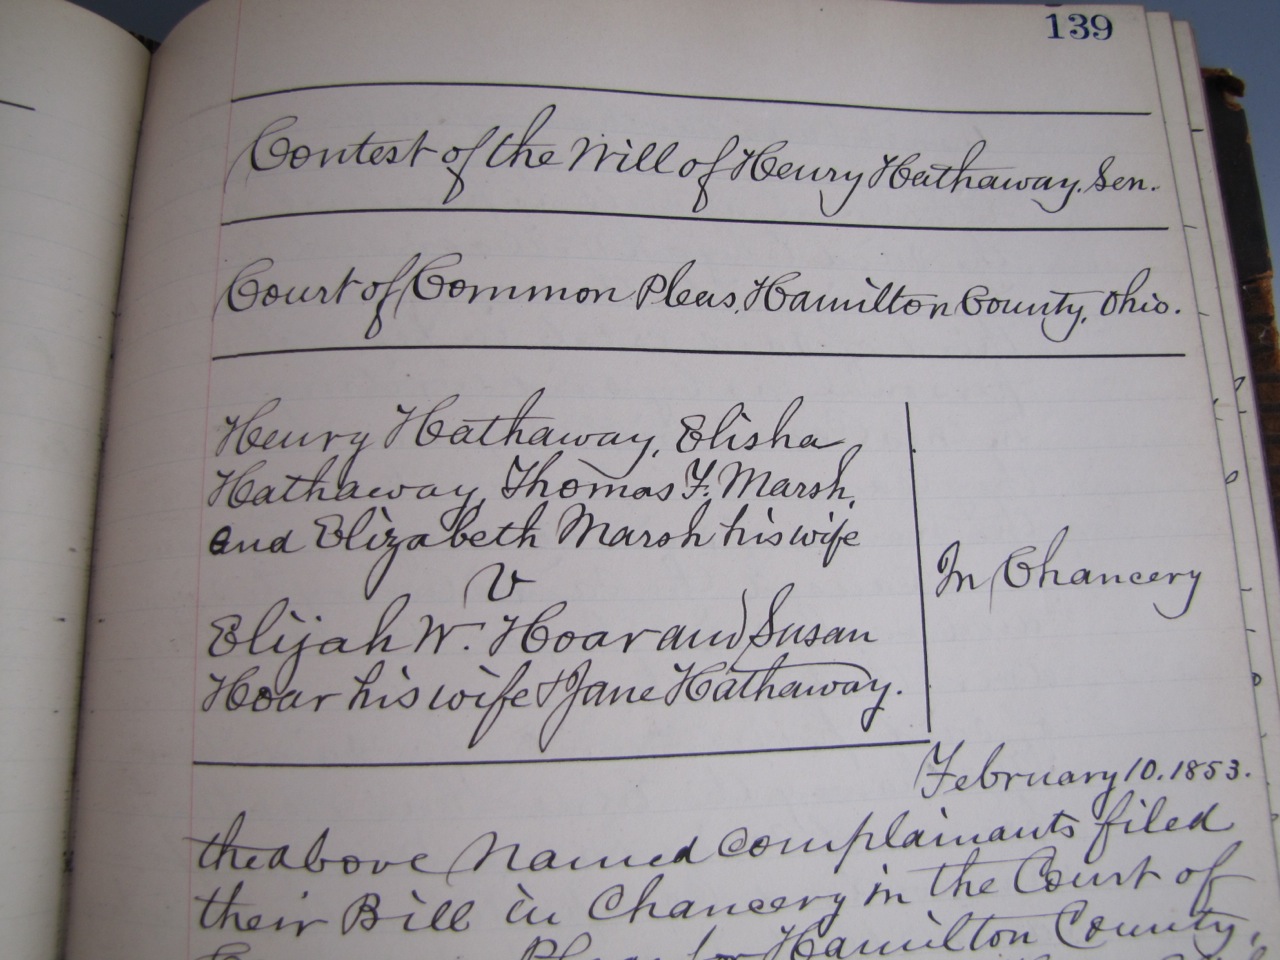 139
Contest of the Will of Henry Hathaway, Sen.
Court of Common Pleas, Hamilton County, Ohio.
Henry Hathaway, Elisha
Hathaway, Thomas F. Marsh,
and Elizabeth Marsh his wife
V
Elijah W. Hoar and Susan
Hoar his wife & Jane Hathaway.
In Chancery
February 10. 1853.
the above named complainants filed
their Bill in Chancery in the Court of
Pleas for Hamilton County,